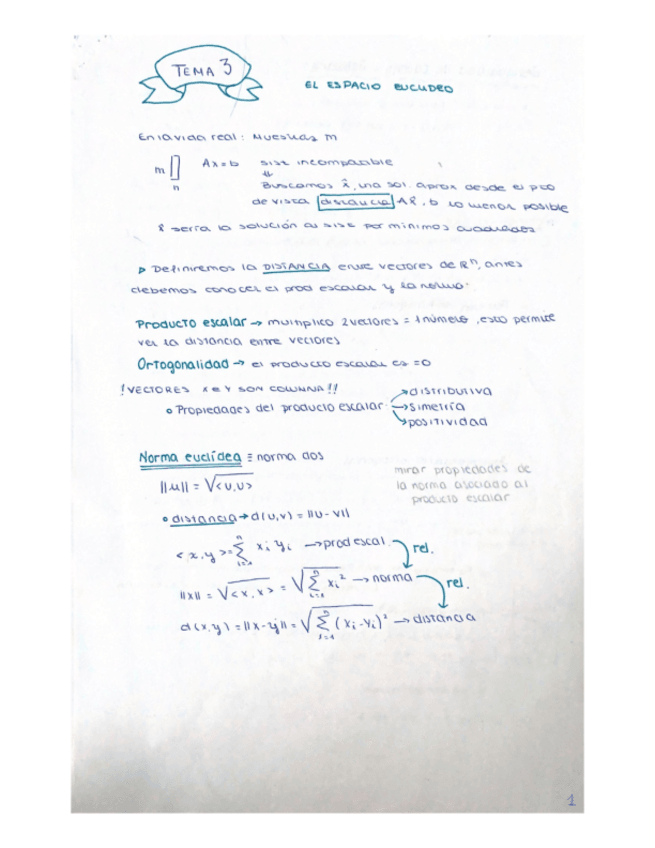 TEMA 3
EL ESPACIO EUCLIDEO
En la vida real: Muestras m
m
n
Ax=b sist incompatible
⇓
Buscamos x̂, una sol. aprox desde el pto
de vista distancia Ax̂, b lo menor posible
x̂ sería la solución al sist por mínimos cuadrados
▷ Definiremos la DISTANCIA entre vectores de ℝⁿ, antes
debemos conocer el prod escalar y la norma.
Producto escalar → multiplico 2 vectores = 1 número, esto permite
ver la distancia entre vectores
Ortogonalidad → el producto escalar es =0
!VECTORES x e y SON COLUMNA!!
• Propiedades del producto escalar
→ distributiva
→ simetría
→ positividad
Norma euclídea ≡ norma dos
mirar propiedades de
la norma asociado al
producto escalar
||u|| = √<u,u>
• distancia → d(u,v) = ||u-v||
<x,y> = ∑ⁿᵢ₌₁ xᵢ yᵢ → prod escal.
rel.
||x|| = √<x,x> = √∑ⁿᵢ₌₁ xᵢ² → norma
rel.
d(x,y) = ||x-y|| = √∑ⁿᵢ₌₁ (xᵢ-yᵢ)² → distancia
1